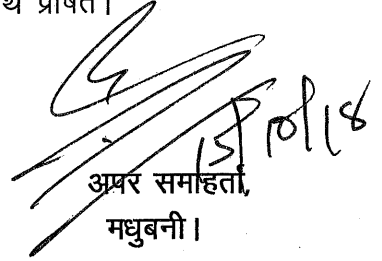 थ प्रेषित।
15/10/18
अपर समाहर्ता,
मधुबनी।